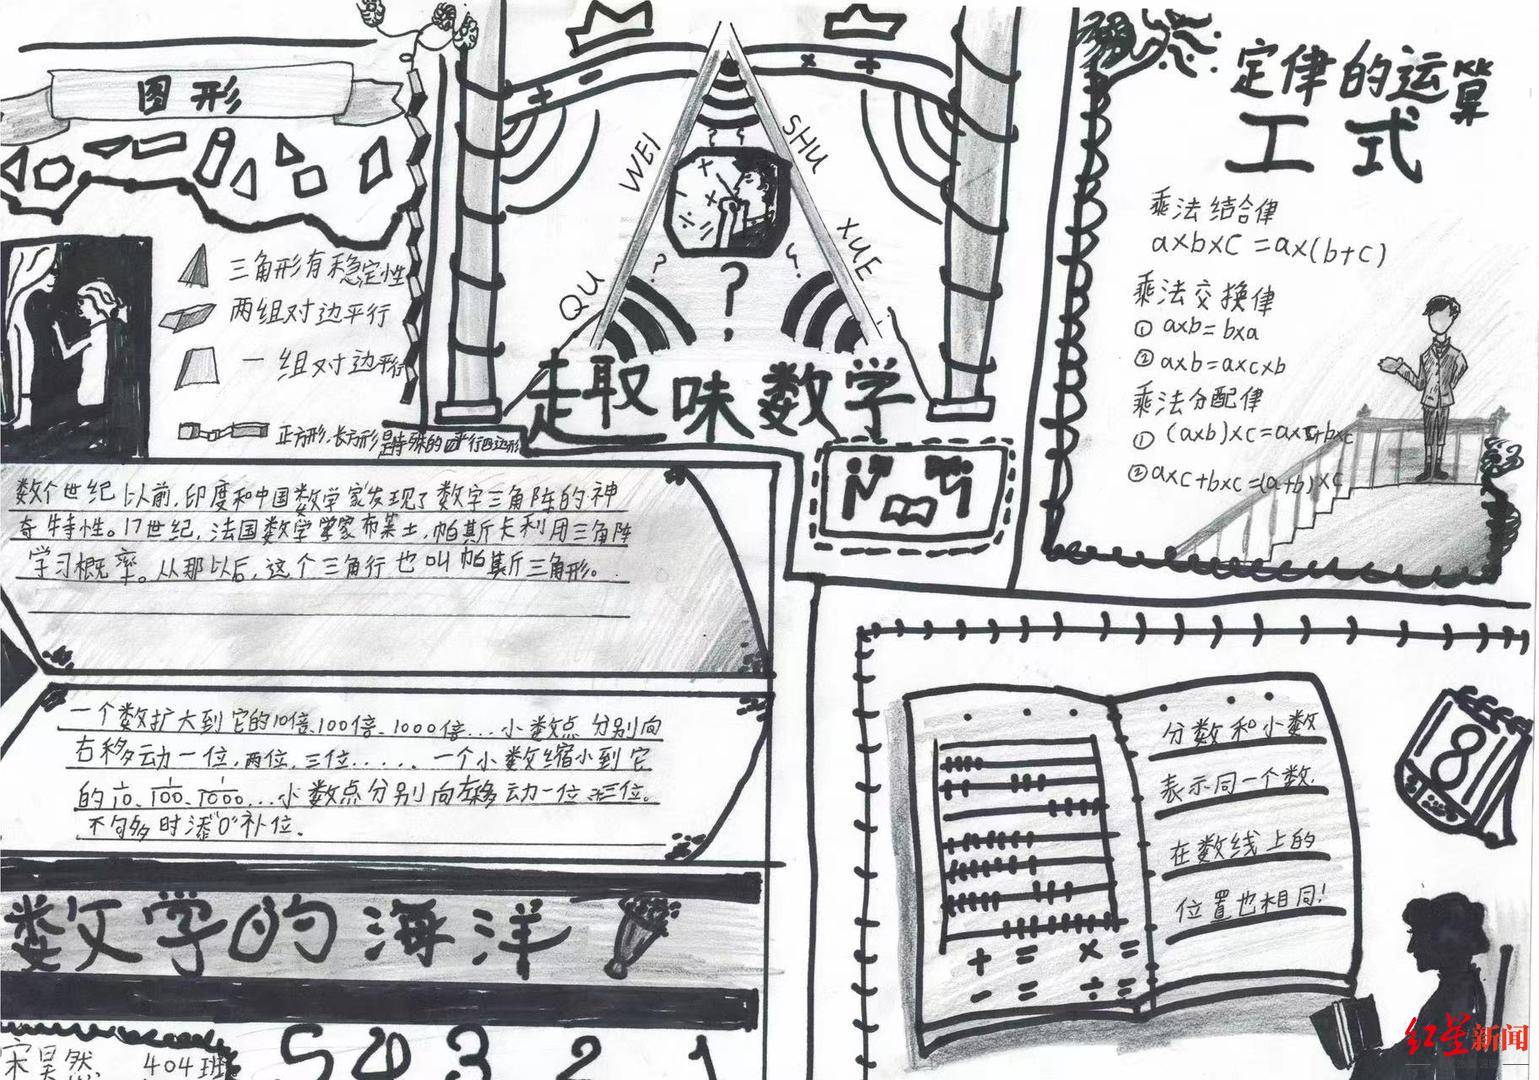 图形
三角形有稳定性
两组对边平行
一组对边平行
正方形,长方形是特殊的平行四边形
QU WEI SHU XUE
趣味数学
定律的运算
工式
乘法结合律
a×b×c=a×(b+c)
乘法交换律
① a×b=b×a
② a×b=a×c×b
乘法分配律
① (a×b)×c=a×c+b×c
② a×c+b×c=(a+b)×c
数个世纪以前,印度和中国数学家发现了数字三角阵的神
奇特性。17世纪,法国数学家布莱士,帕斯卡利用三角阵
学习概率。从那以后,这个三角行也叫帕斯三角形。
一个数扩大到它的10倍、100倍、1000倍...小数点分别向
右移动一位,两位,三位......一个小数缩小到它
的1/10、1/100、1/1000...小数点分别向左移动一位 三位。
不够多时添"0"补位.
数学的海洋
宋昊然. 404班
5 4 3 2 1
+ = × =
- = ÷ =
分数和小数
表示同一个数,
在数线上的
位置也相同!
8
红星新闻